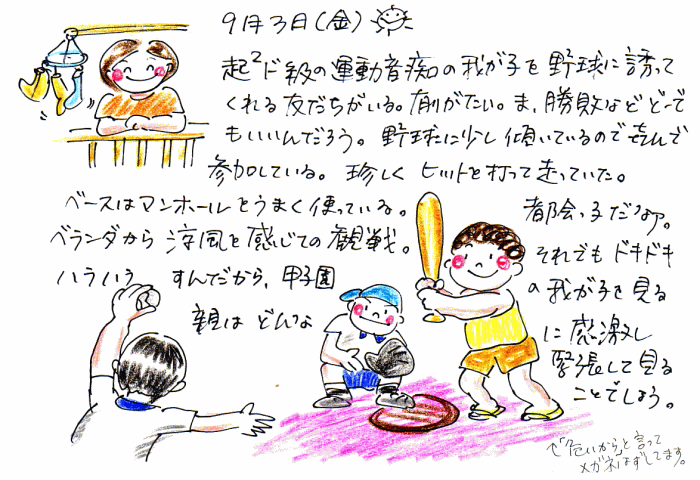 9月3日(金)
起2ド級の運動音痴の我が子を野球に誘って
くれる友だちがいる。有難がたい。ま、勝敗などどーで
もいいんだろう。野球に少し傾いているので喜んで
参加している。珍しくヒットを打って走っていた。
ベースはマンホールをうまく使っている。都会っ子だなァ。
ベランダから涼風を感じての観戦。それでもドキドキ
ハラハラすんだから、甲子園の我が子を見る
親はどんなに感激し
緊張して見る
ことでしょう。
危いからと言って
メガネはずしてます。